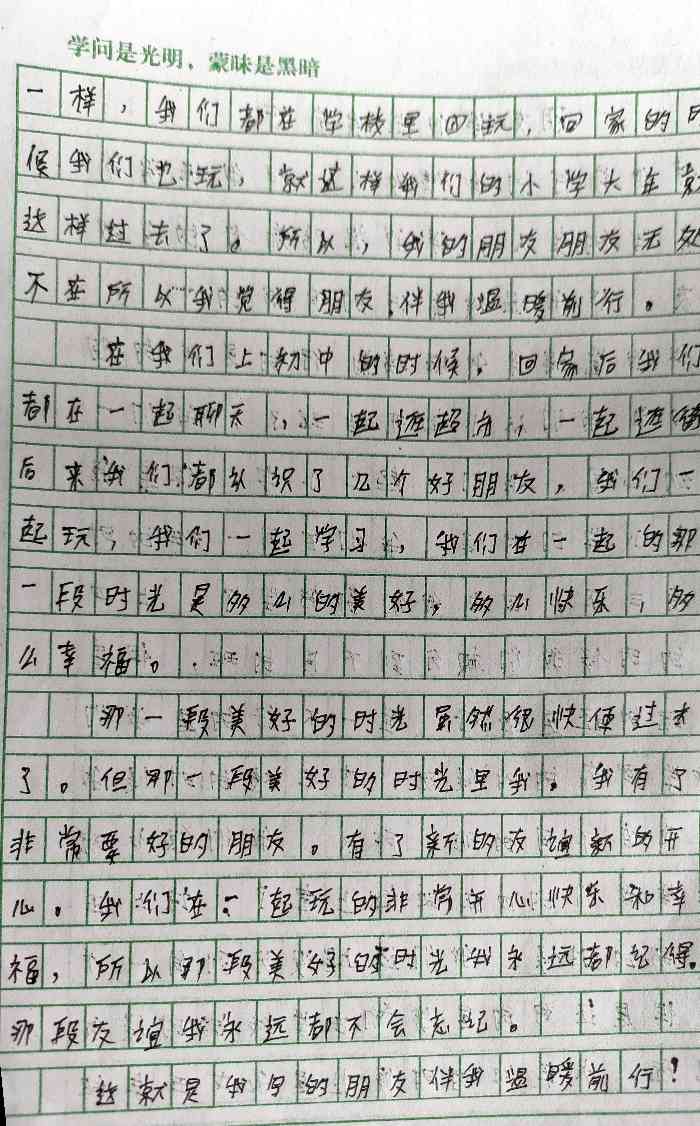 学问是光明，蒙昧是黑暗
一样，我们都在学校里面玩，回家的时
候我们也玩，就这样我们的小学六年就
这样过去了。所以，我的朋友朋友无处
不在所以我觉得朋友伴我温暖前行。
在我们上初中的时候。回家后我们
都在一起聊天，一起逛超市，一起逛街
后来我们都认识了几个好朋友，我们一
起玩，我们一起学习，我们在一起的那
一段时光是多么的美好，多么快乐，多
么幸福。
那一段美好的时光虽然很快便过去
了。但那一段美好的时光里我。我有了
非常要好的朋友。有了新的友谊新的开
心。我们在一起玩的非常开心快乐和幸
福，所以那段美好的时光我永远都记得。
那段友谊我永远都不会忘记。
这就是我的朋友伴我温暖前行！